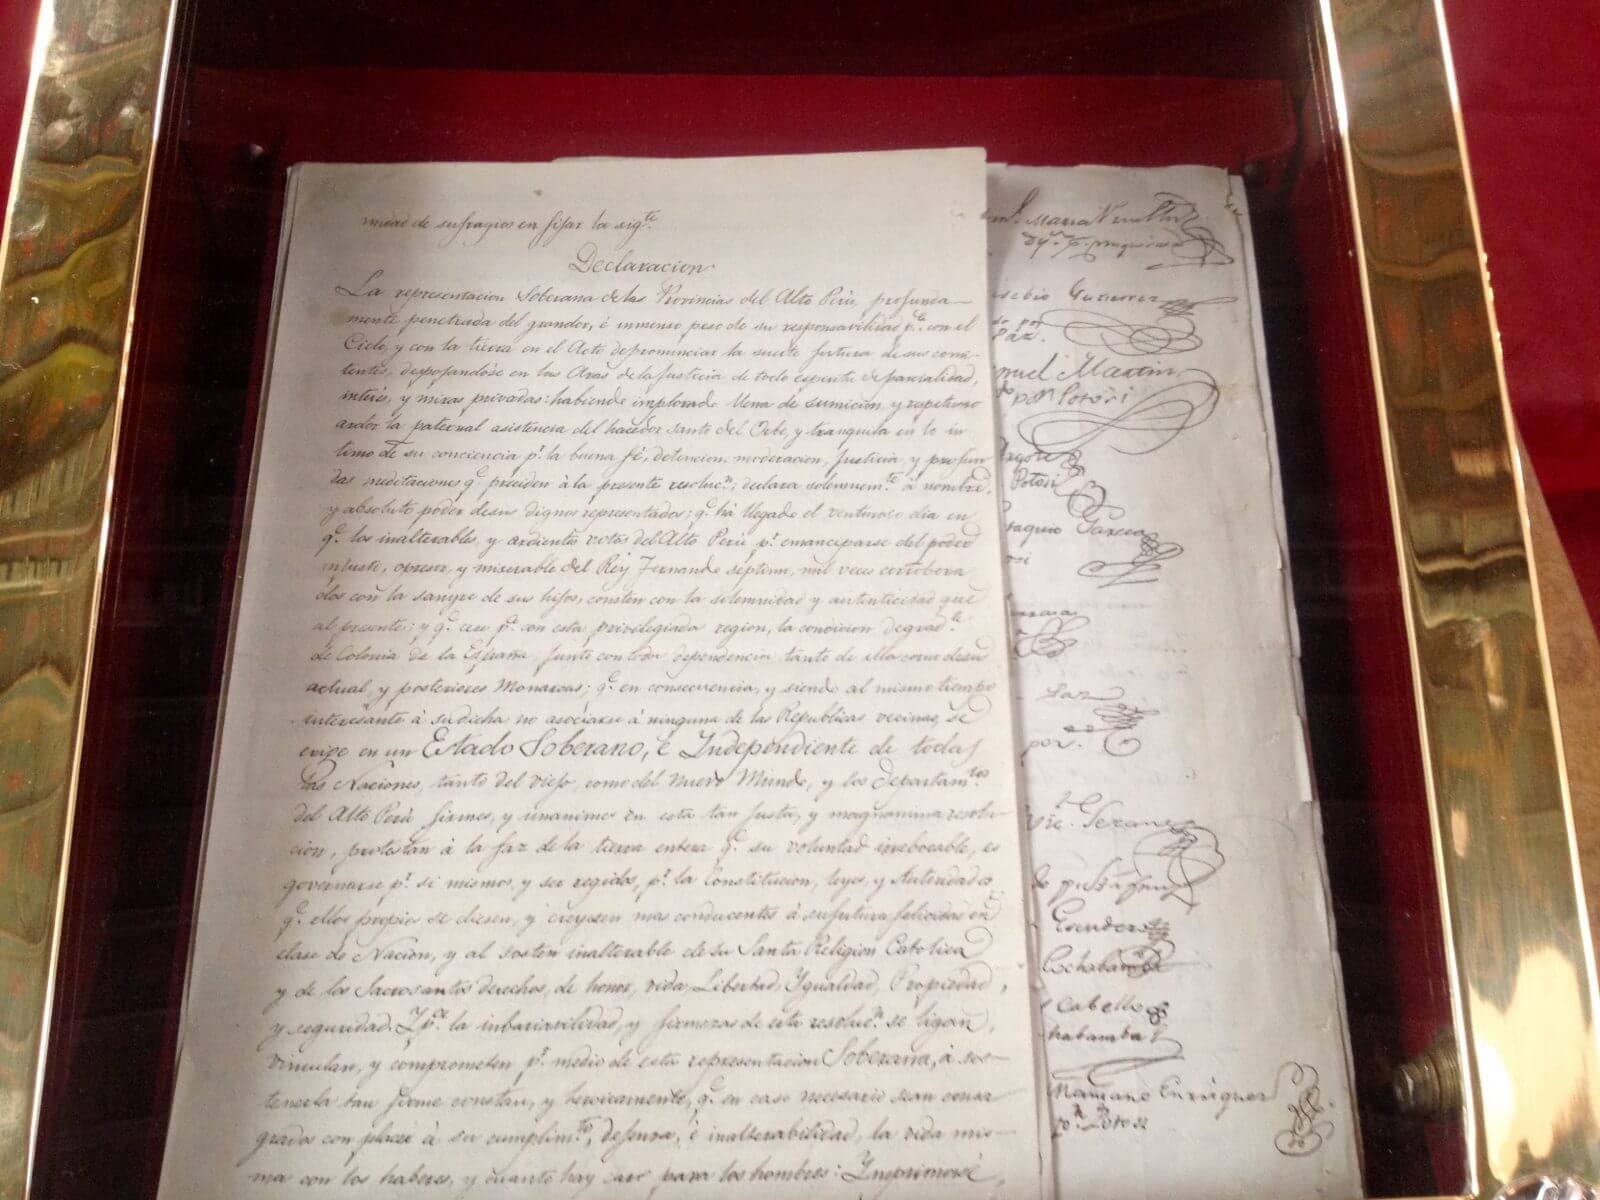 midad de sufragios en fijar la sig.te
Declaracion
La representacion Soberana de las Provincias del Alto Perú, profunda-
mente penetrada del grandor, é inmenso peso de su responsavilidad p.a con el
Cielo, y con la tierra en el Acto de pronunciar la suerte futura de sus comi-
tentes, despojandose en las Aras de la Justicia de todo espiritu de parcialidad,
interés, y miras privadas: habiendo implorado llena de sumicion, y respetuoso
ardor la paternal asistencia del hacedor santo del Orbe, y tranquila en lo in-
timo de su conciencia p.r la buena fé, detencion, moderacion, Justicia, y profun
das meditaciones q.e preciden à la presente resoluc.n; declara solemnem.te á nombre,
y absoluto poder de sus dignos representados; q.e há llegado el venturoso dia en
q.e los inalterables, y ardientes votos del Alto Perú, p.r emanciparse del poder
injusto, opresor, y miserable del Rey Fernando septimo, mil veces corrobora
dos con la sangre de sus hijos, consten con la solemnidad y autenticidad que
al presente; y q.e cese p.a con esta privilegiada region, la condicion degrad.te
de Colonia de la España, junto con toda dependencia tanto de ella como de su
actual, y posteriores Monarcas; q.e en consecuencia, y siendo al mismo tiempo
interesante à su dicha no asociarse á ninguna de las Republicas vecinas, se
erige en un Estado Soberano, é Independiente de todas
las Naciones, tanto del viejo, como del nuevo Mundo, y los Departam.tos
del Alto Perú firmes, y unanimes en esta tan Justa, y magnanima resolu-
cion, protestan à la faz de la tierra entera q.e su voluntad irrebocable, es
governarse p.r si mismos, y ser regidos, p.r la Constitucion, leyes, y Autoridades
q.e ellos propios se diesen, y creyesen mas conducentes à su futura felicidad en
clase de Nacion, y al sosten inalterable de su Santa Religion Catolica
y de los Sacrosantos derechos, de honor, vida, Libertad, Ygualdad, Propiedad,
y seguridad. Y p.a la inbariavilidad, y firmeza de esta resoluc.n se ligan,
vinculan, y comprometen, p.r medio de esta representacion Soberana, à sos-
tenerla tan firme constan, y heroicamente, q.e en caso necesario sean consa
grados con placer à su cumplim.to, defensa, é inalterabilidad, la vida mis-
ma con los haberes, y cuanto hay caro para los hombres: Ymprimase,
Maria
sebio Gutierrez
do por
Paz.
nuel Martin
por Potosi
Potosi
taquio Garcia
osi
Paz
por.
Serano
Escudero
Cochabamba
Cabello
habamba
Mariano Enriquez
Potosi